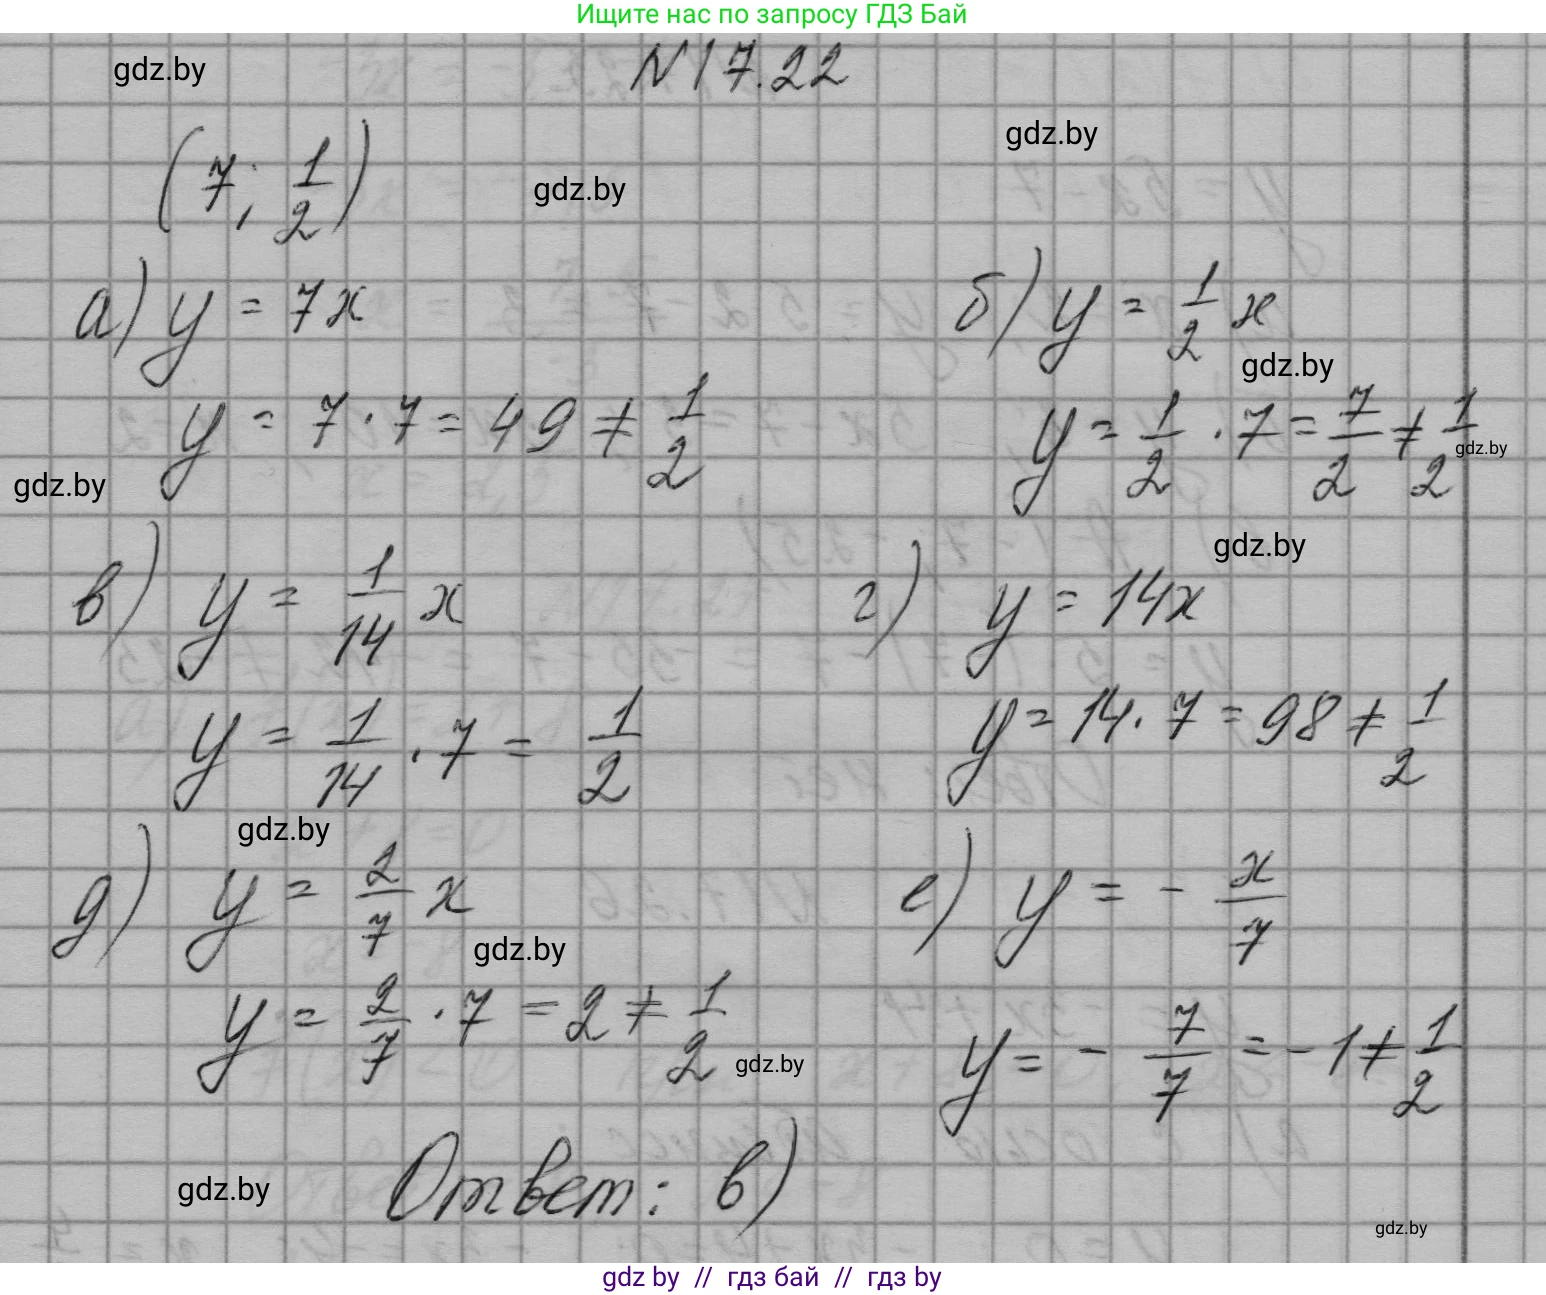 Ищите нас по запросу ГДЗ Бай
gdz.by
N 17.22
gdz.by
(7; 1/2)
gdz.by
а) y = 7x
б) y = 1/2 x
gdz.by
y = 7·7 = 49 ≠ 1/2
y = 1/2 · 7 = 7/2 ≠ 1/2
gdz.by
gdz.by
gdz.by
в) y = 1/14 x
г) y = 14x
y = 1/14 · 7 = 1/2
y = 14·7 = 98 ≠ 1/2
gdz.by
д) y = 2/7 x
е) y = - x/7
gdz.by
y = 2/7 · 7 = 2 ≠ 1/2
y = - 7/7 = -1 ≠ 1/2
gdz.by
Ответ: в)
gdz.by
gdz.by
gdz by // гдз бай // гдз by